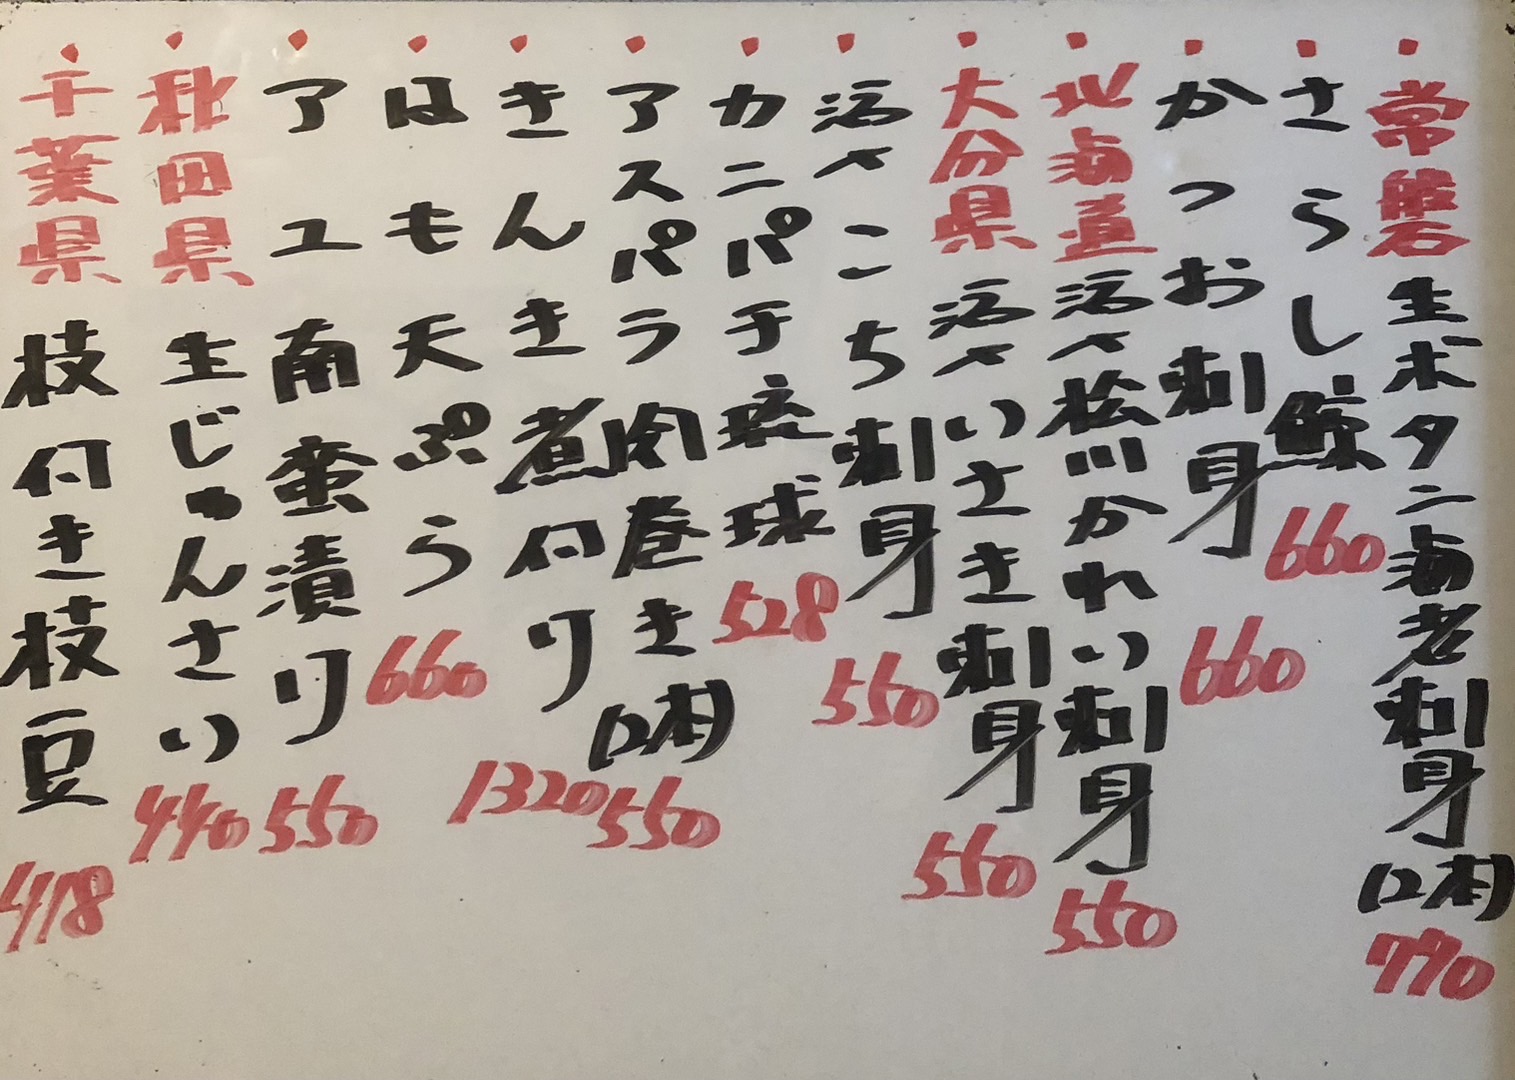 ・常磐生ボタン海老刺身(2本)770
・さらし鯨660
・かつお刺身660
・北海道活〆松川かれい刺身550
・大分県活〆いさき刺身550
・活〆こち刺身550
・カニパチ琉球528
・アスパラ肉巻き(2本)550
・きんき煮付け1320
・はも天ぷら660
・アユ南蛮漬け550
・秋田県生じゅんさい440
・千葉県枝付き枝豆418